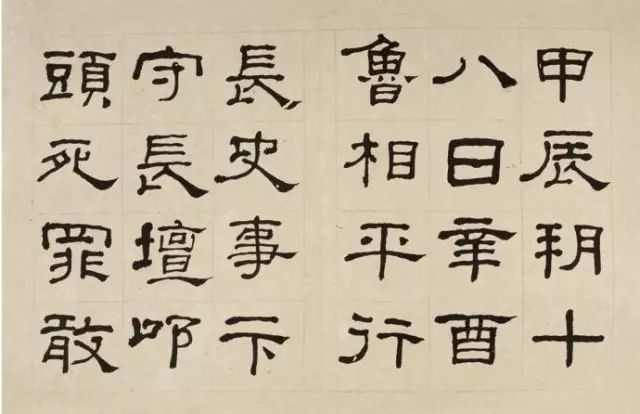 甲辰朔十
八日辛酉
魯相平行
長史事卞
守長擅叩
頭死罪敢